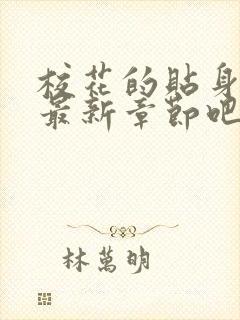 校花的貼身
最新章節吧
林萬明